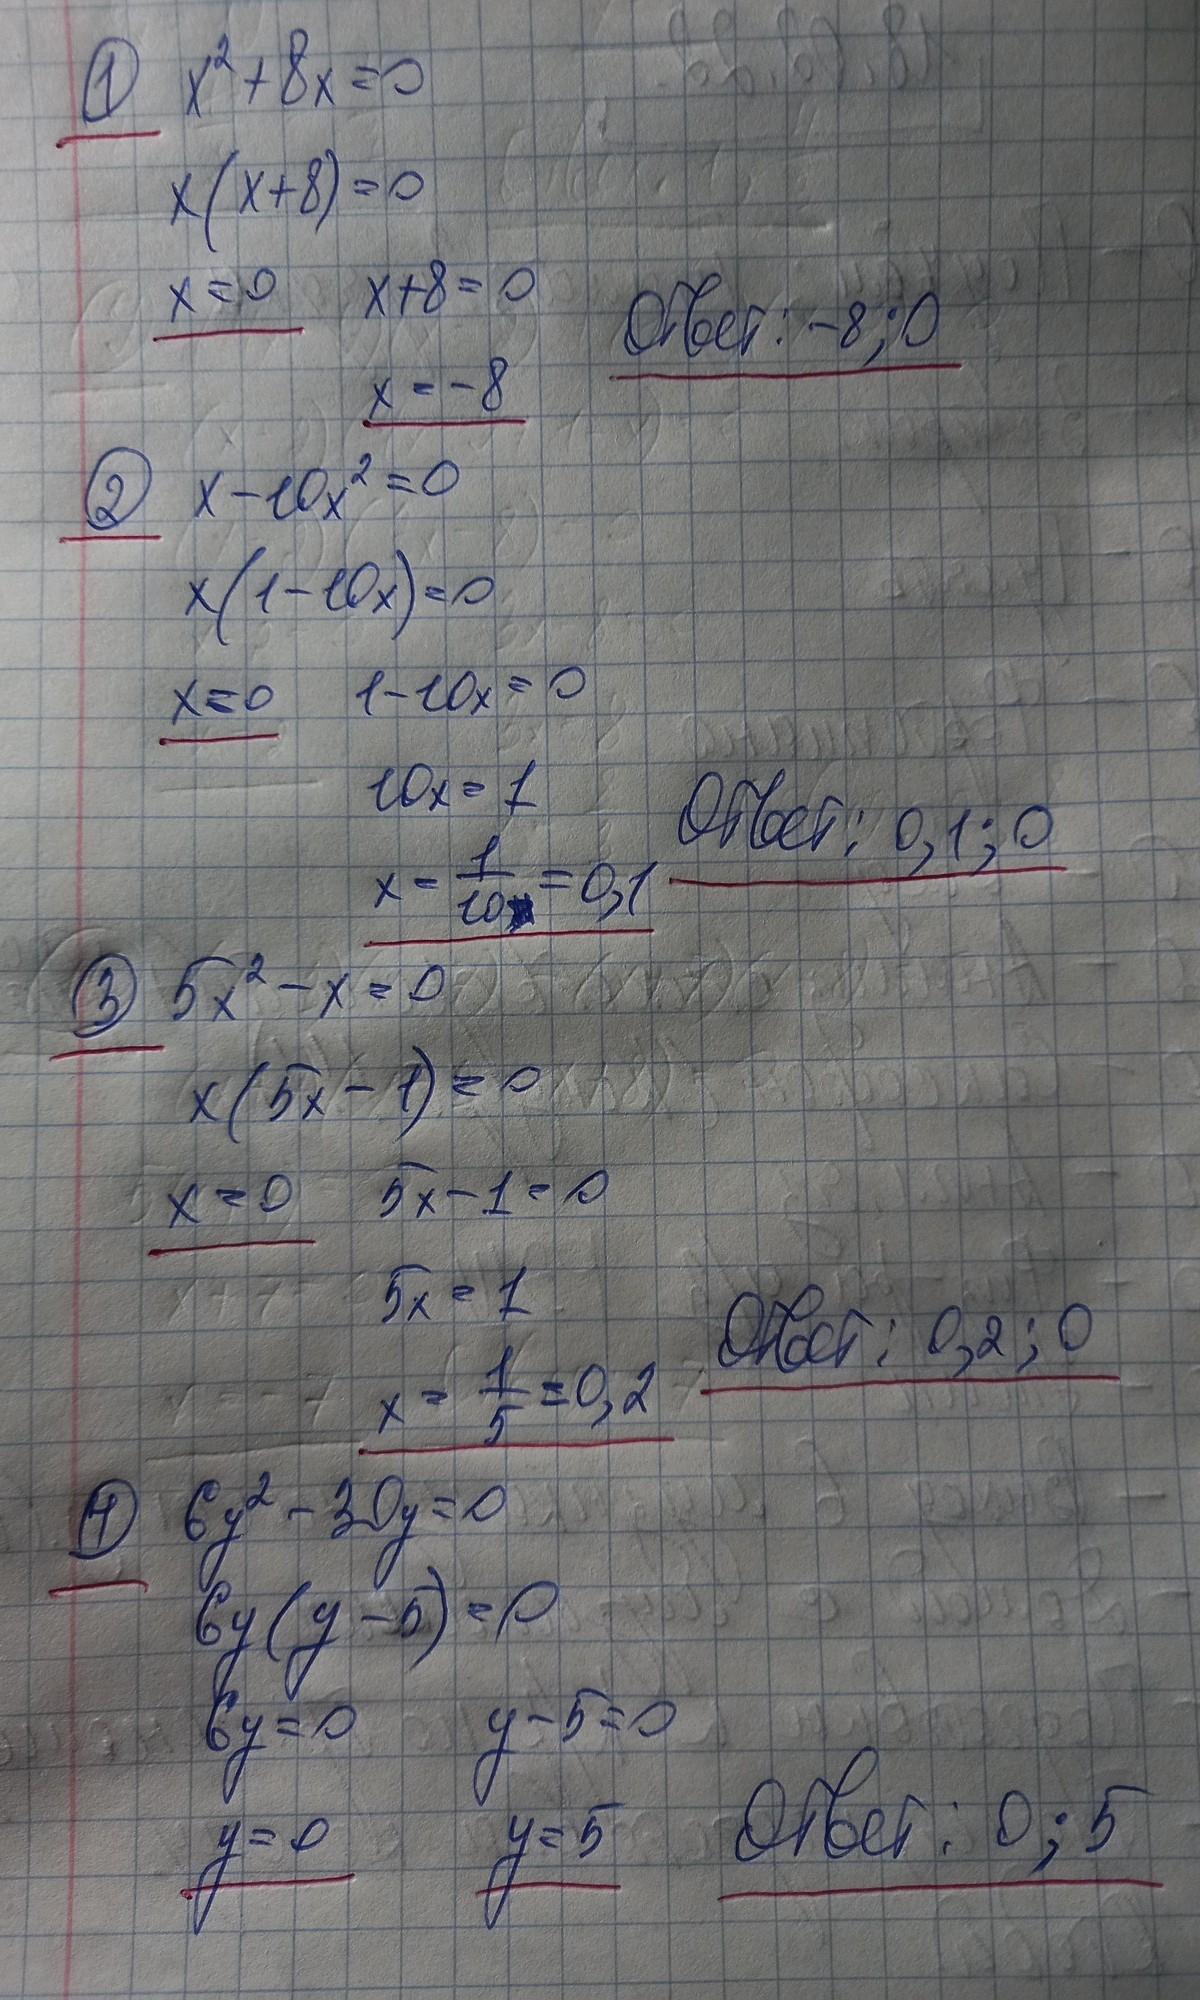 ① x² + 8x = 0
x(x+8) = 0
x = 0 x+8 = 0
Ответ: -8; 0
x = -8
② x - 10x² = 0
x(1 - 10x) = 0
x = 0 1 - 10x = 0
10x = 1
Ответ: 0,1; 0
x = 1/10 = 0,1
③ 5x² - x = 0
x(5x - 1) = 0
x = 0 5x - 1 = 0
5x = 1
Ответ: 0,2; 0
x = 1/5 = 0,2
④ 6y² - 30y = 0
6y(y - 5) = 0
6y = 0 y - 5 = 0
y = 0 y = 5 Ответ: 0; 5